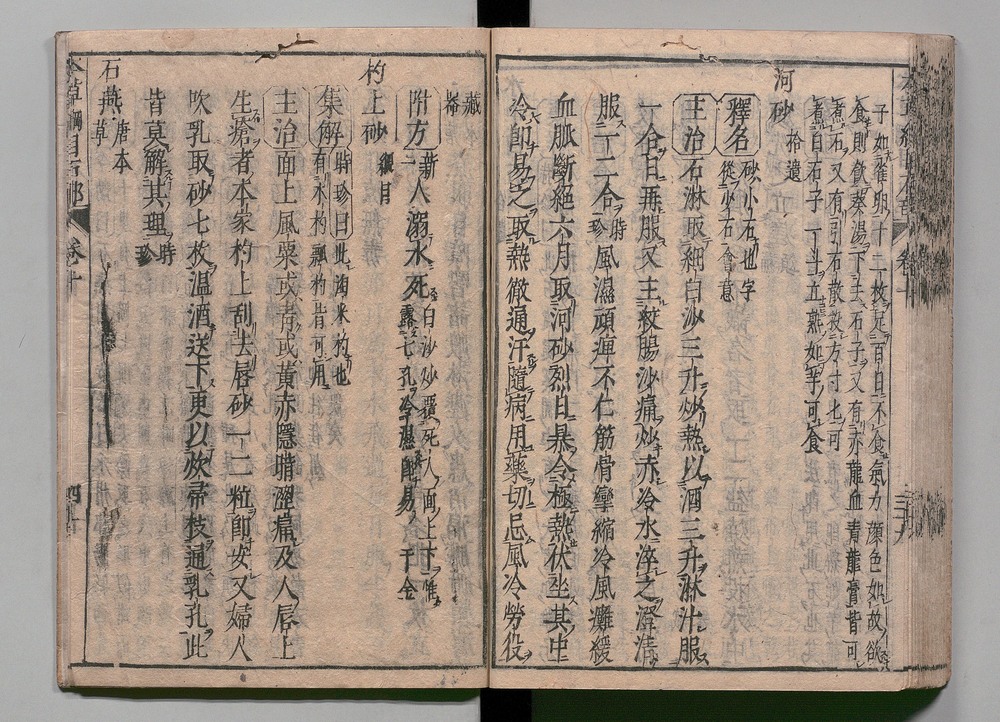 子如雀卵十二枚足百日不食氣力顏色如故欲
食則飲葵湯下去石子又有赤龍血青龍膏皆可
煮石又有引石散投方寸匕可
煮白石子一斗立熟如芋可食
河砂 拾遺
釋名 砂小石也字
從少石會意
主治石淋取細白沙三升炒熱以酒三升淋汁服
一合日再服又主絞腸沙痛炒赤冷水淬之澄清
服一二合 時珍 風濕頑痺不仁筋骨攣縮冷風癱緩
血脈斷絕六月取河砂烈日暴令極熱伏坐其中
冷即易之取熱徹通汗隨病用藥切忌風冷勞役
藏器
附方 新一 人溺水死 白沙炒覆死人面上下惟
露七孔冷濕即易 千金
杓上砂 綱目
集解 時珍曰此淘米杓也
有木杓瓢杓皆可用
主治面上風粟或青或黃赤隱暗澀痛及人唇上
生瘡者本家杓上刮去唇砂一二粒即安又婦人
吹乳取砂七枚溫酒送下更以炊帚枝通乳孔此
皆莫解其理 時珍
石燕 唐本草
本草綱目石部 卷十 四十